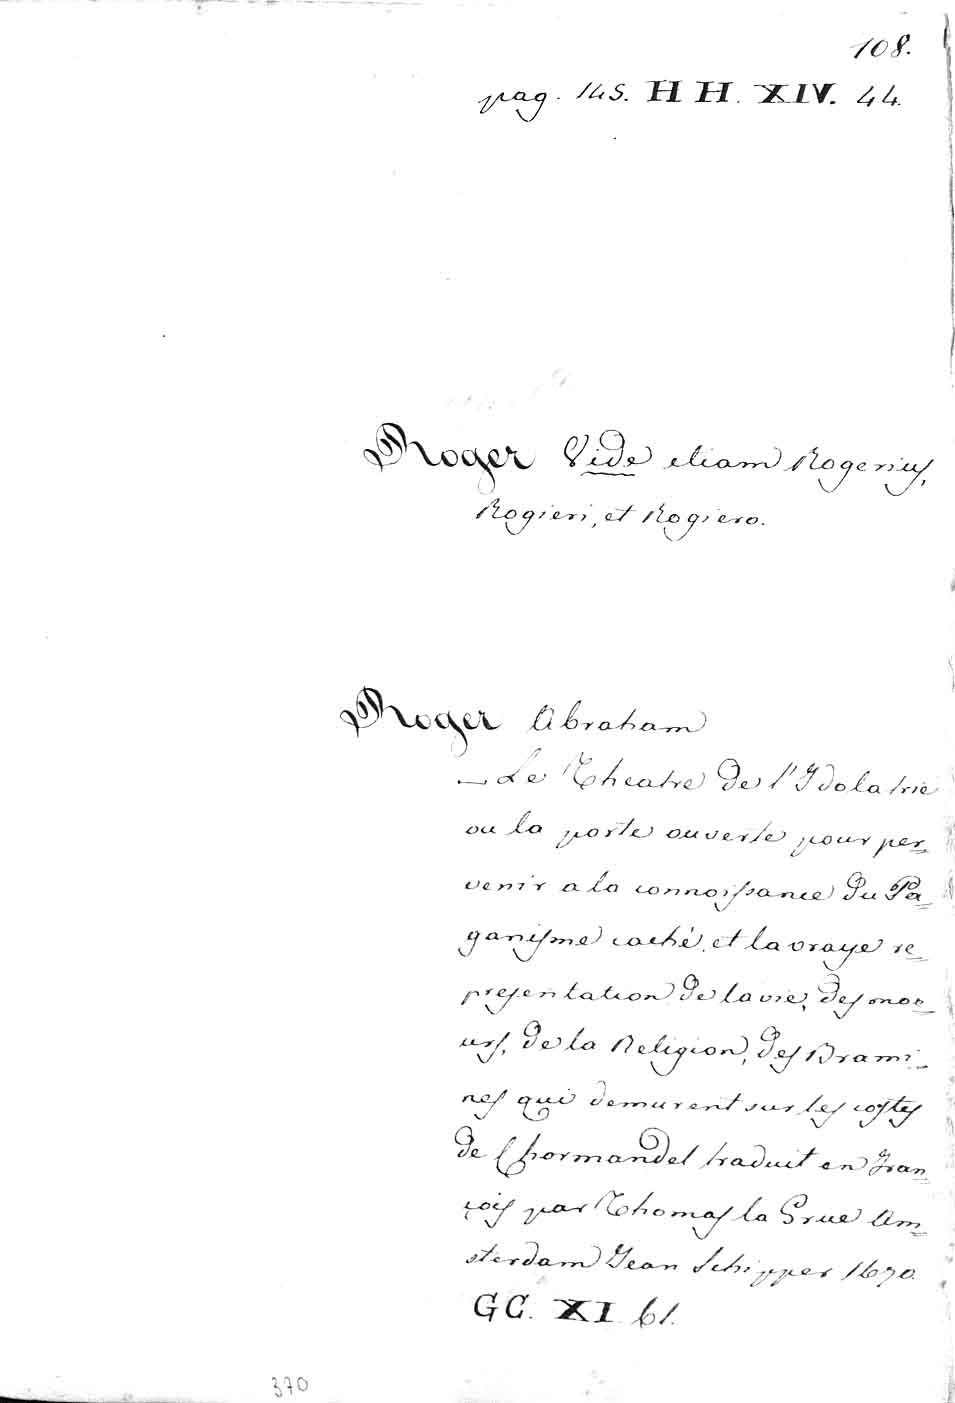 108.
pag. 145. HH. XIV. 44.
Roger Vide etiam Rogerius,
Rogieri, et Rogiero.
Roger Abraham
— Le Theatre de l'Idolatrie
ou la porte ouverte pour per=
venir a la connoissance du Pa=
ganisme caché, et la vraye re=
presentation de la vie, des moe=
urs, de la Religion, des Brami=
nes qui demurent sur les costes
de Chormandel traduit en Fran=
çois par Thomas la Grue Am=
sterdam Jean Schipper 1670.
GC. XI 61.
370